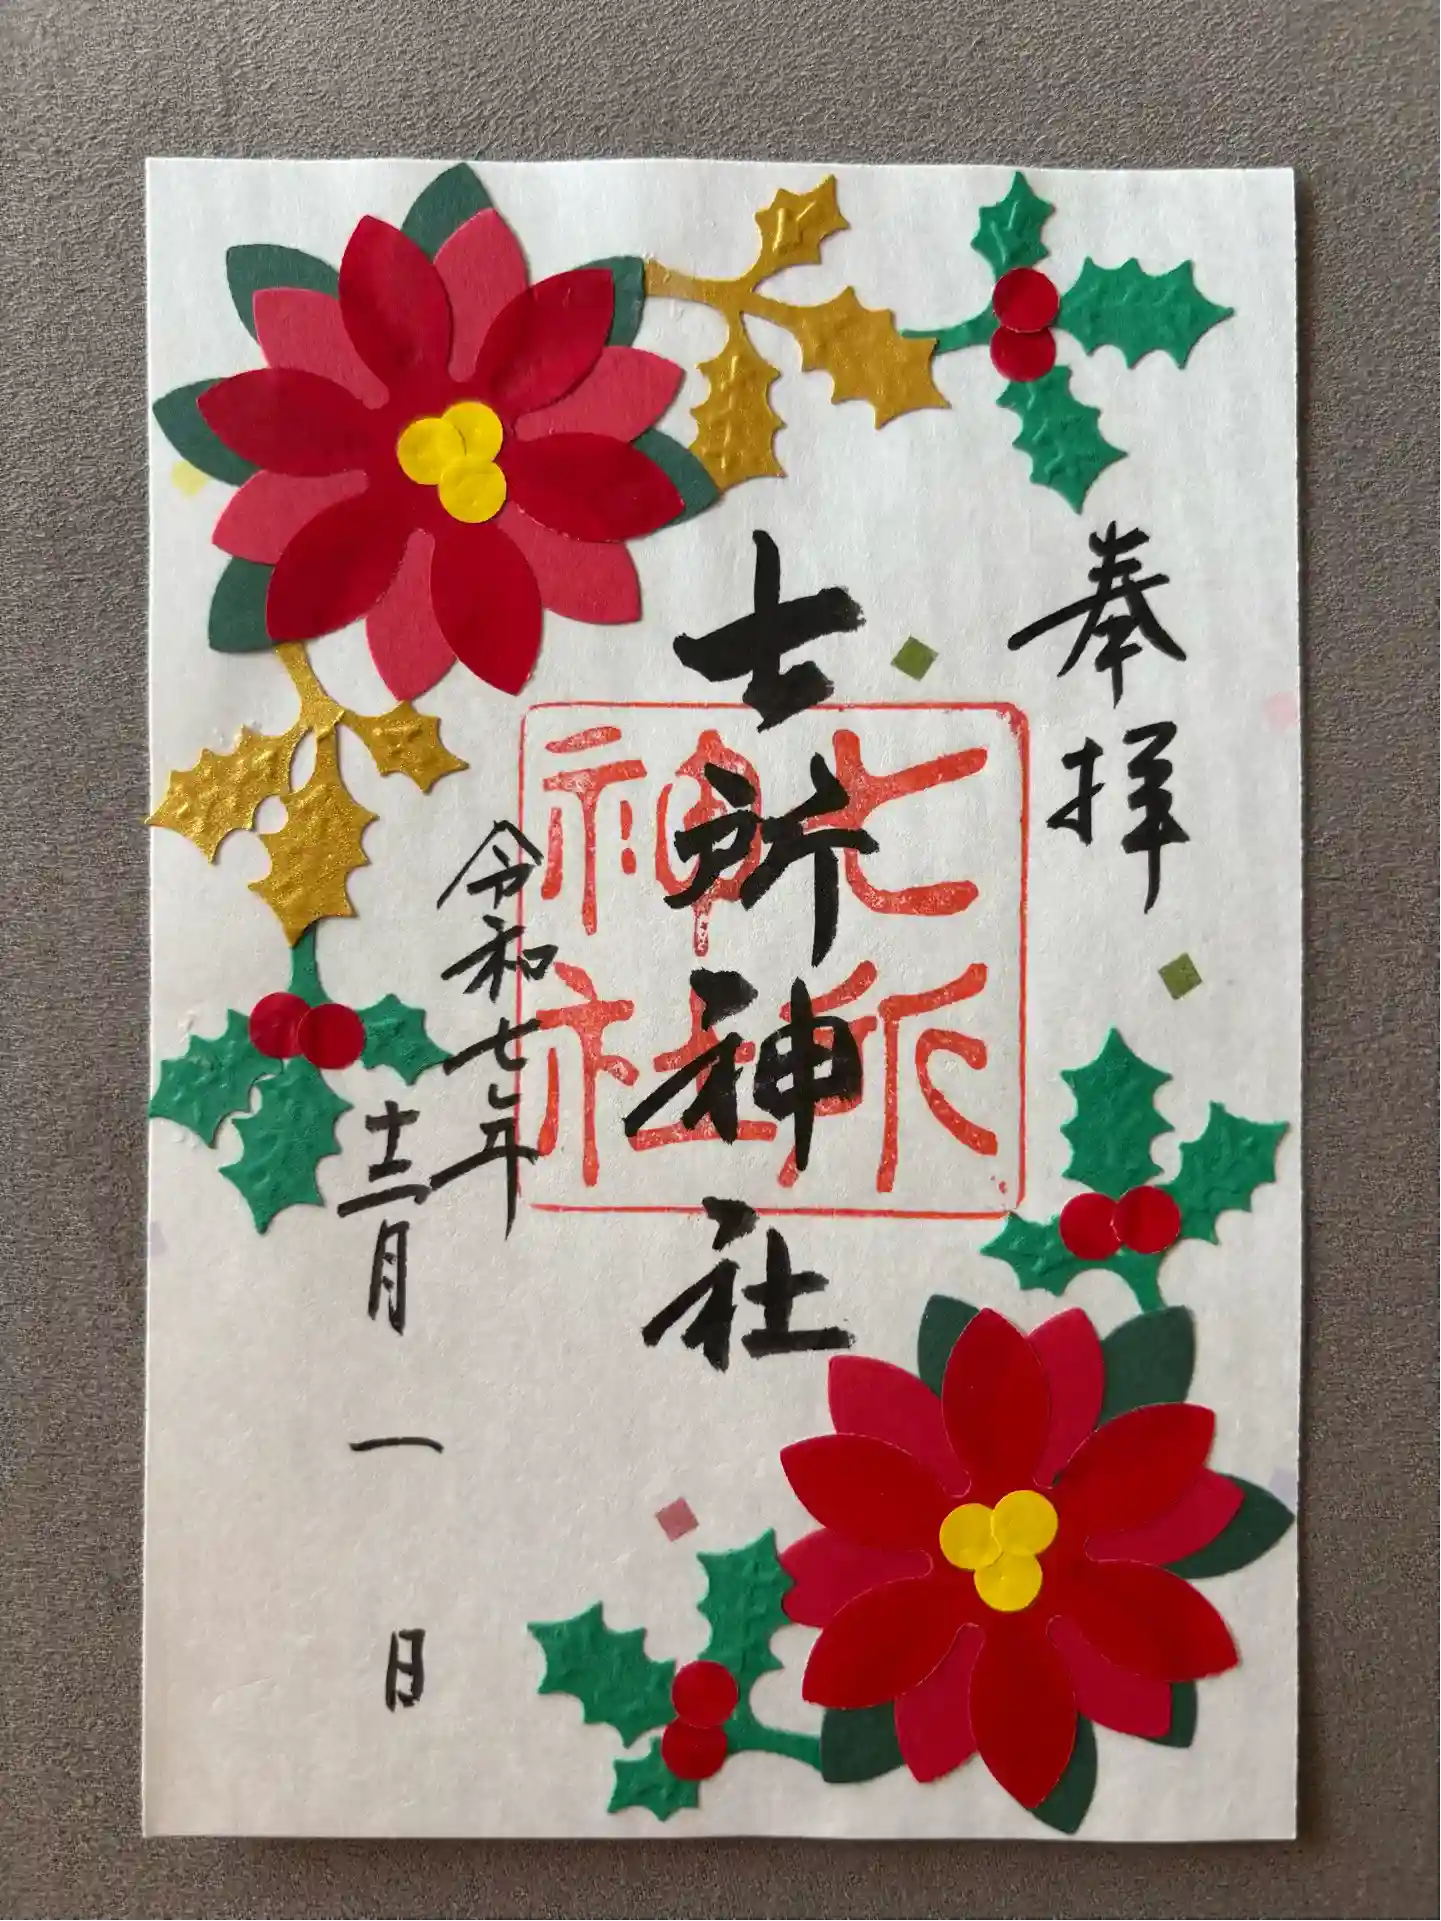 奉拝
七所神社
七所
神社
令和七年
十二月一日